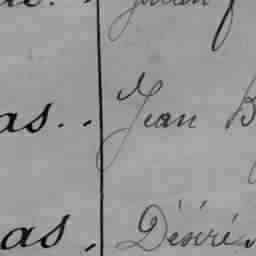 as.. Jean B
as. Désiré